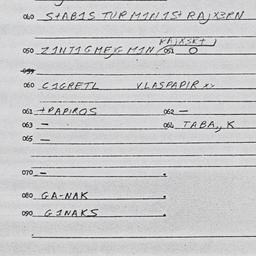 040 S+AB1S TUP M1N1S+ RAJX3PN
RAJXSK+J
050 Z1NT1GMEJG M1N 051 O
059
060 C1GRETL VLASPAPIR xx
061 +PAPIROS 062 —
063 — 064 TABA,,K
065 —
070 —
080 GA-NAK
090 G1NAKS